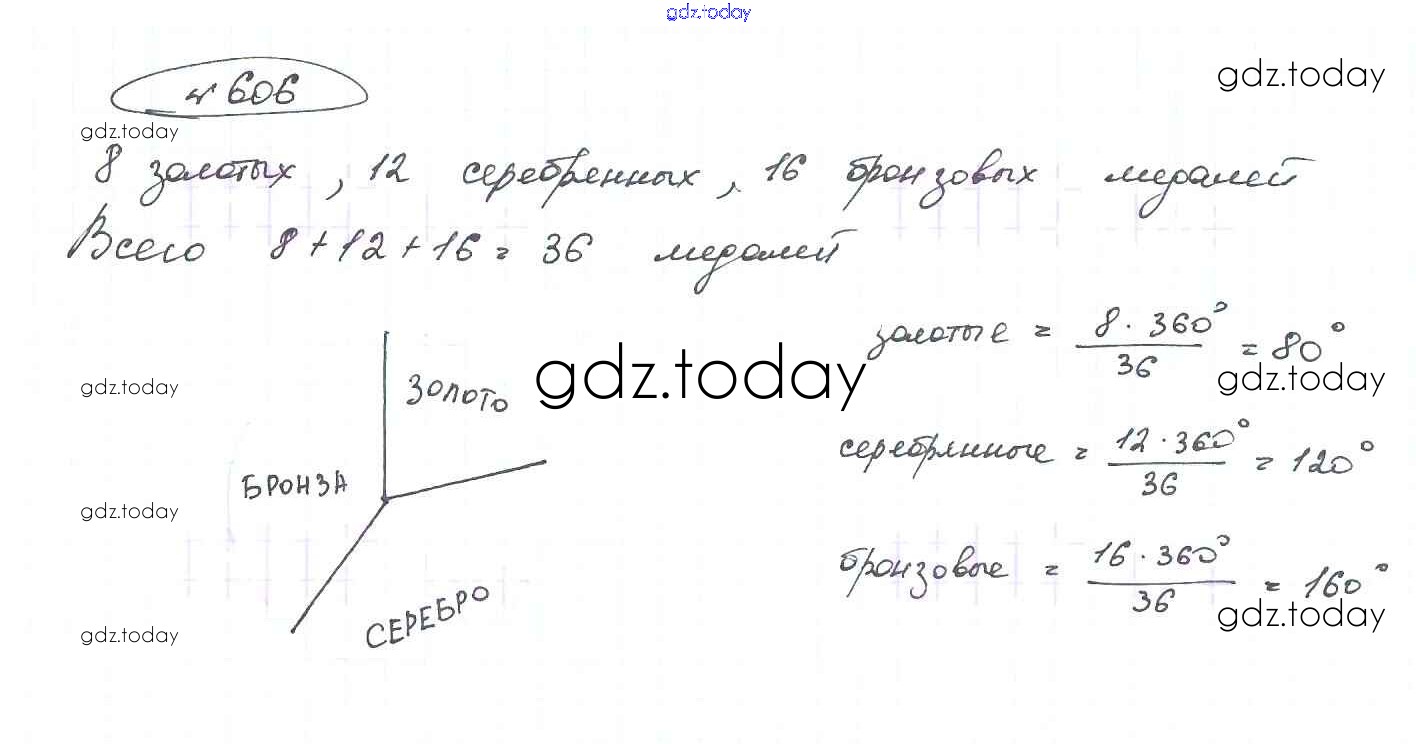 gdz.today
№ 606
gdz.today
gdz.today
8 золотых, 12 серебренных, 16 бронзовых медалей
Всего 8 + 12 + 16 = 36 медалей
золотые = 8 · 360° / 36 = 80°
gdz.today
ЗОЛОТО
gdz.today
gdz.today
серебрянные = 12 · 360° / 36 = 120°
БРОНЗА
gdz.today
бронзовые = 16 · 360° / 36 = 160°
СЕРЕБРО
gdz.today
gdz.today